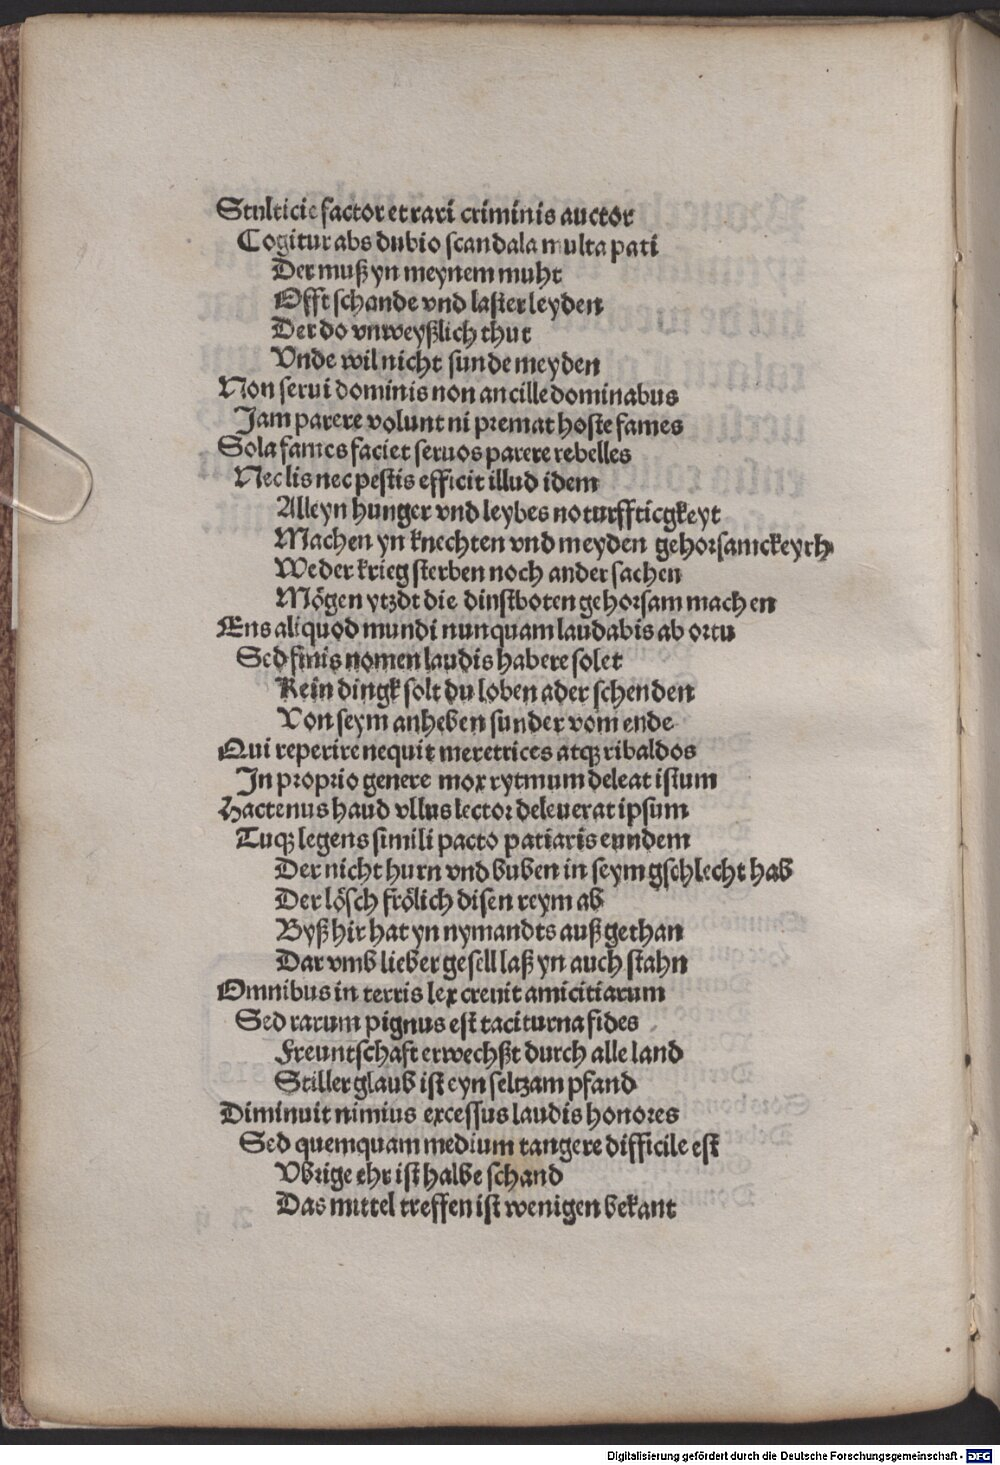 Stulticie factor et rari criminis auctor
Cogitur abs dubio scandala multa pati
Der muß yn meynem muht
Offt schande vnd laster leyden
Der do vnweyßlich thut
Vnde wil nicht sunde meyden
Non serui dominis non ancille dominabus
Jam parere volunt ni premat hoste fames
Sola fames faciet seruos parere rebelles
Nec lis nec pestis efficit illud idem
Alleyn hunger vnd leybes noturffticgkeyt
Machen yn knechten vnd meyden gehorsamckeyth
Weder krieg sterben noch ander sachen
Mögen ytzdt die dinstboten gehorsam machen
Ens aliquod mundi nunquam laudabis ab ortu
Sed finis nomen laudis habere solet
Kein dingk solt du loben ader schenden
Von seym anheben sunder vom ende
Qui reperire nequit meretrices atqꝫ ribaldos
In proprio genere mox rytmum deleat istum
Hactenus haud vllus lector deleuerat ipsum
Tuqꝫ legens simili pacto patiaris eundem
Der nicht hurn vnd buben in seym gschlecht hab
Der lösch frölich disen reym ab
Byß hir hat yn nymandts auß gethan
Dar vmb lieber gesell laß yn auch stahn
Omnibus in terris lex creuit amicitiarum
Sed rarum pignus est taciturna fides
Freuntschaft erwechßt durch alle land
Stiller glaub ist eyn seltzam pfand
Diminuit nimius excessus laudis honores
Sed quemquam medium tangere difficile est
Vbrige ehr ist halbe schand
Das mittel treffen ist wenigen bekant
Digitalisierung gefördert durch die Deutsche Forschungsgemeinschaft - DFG